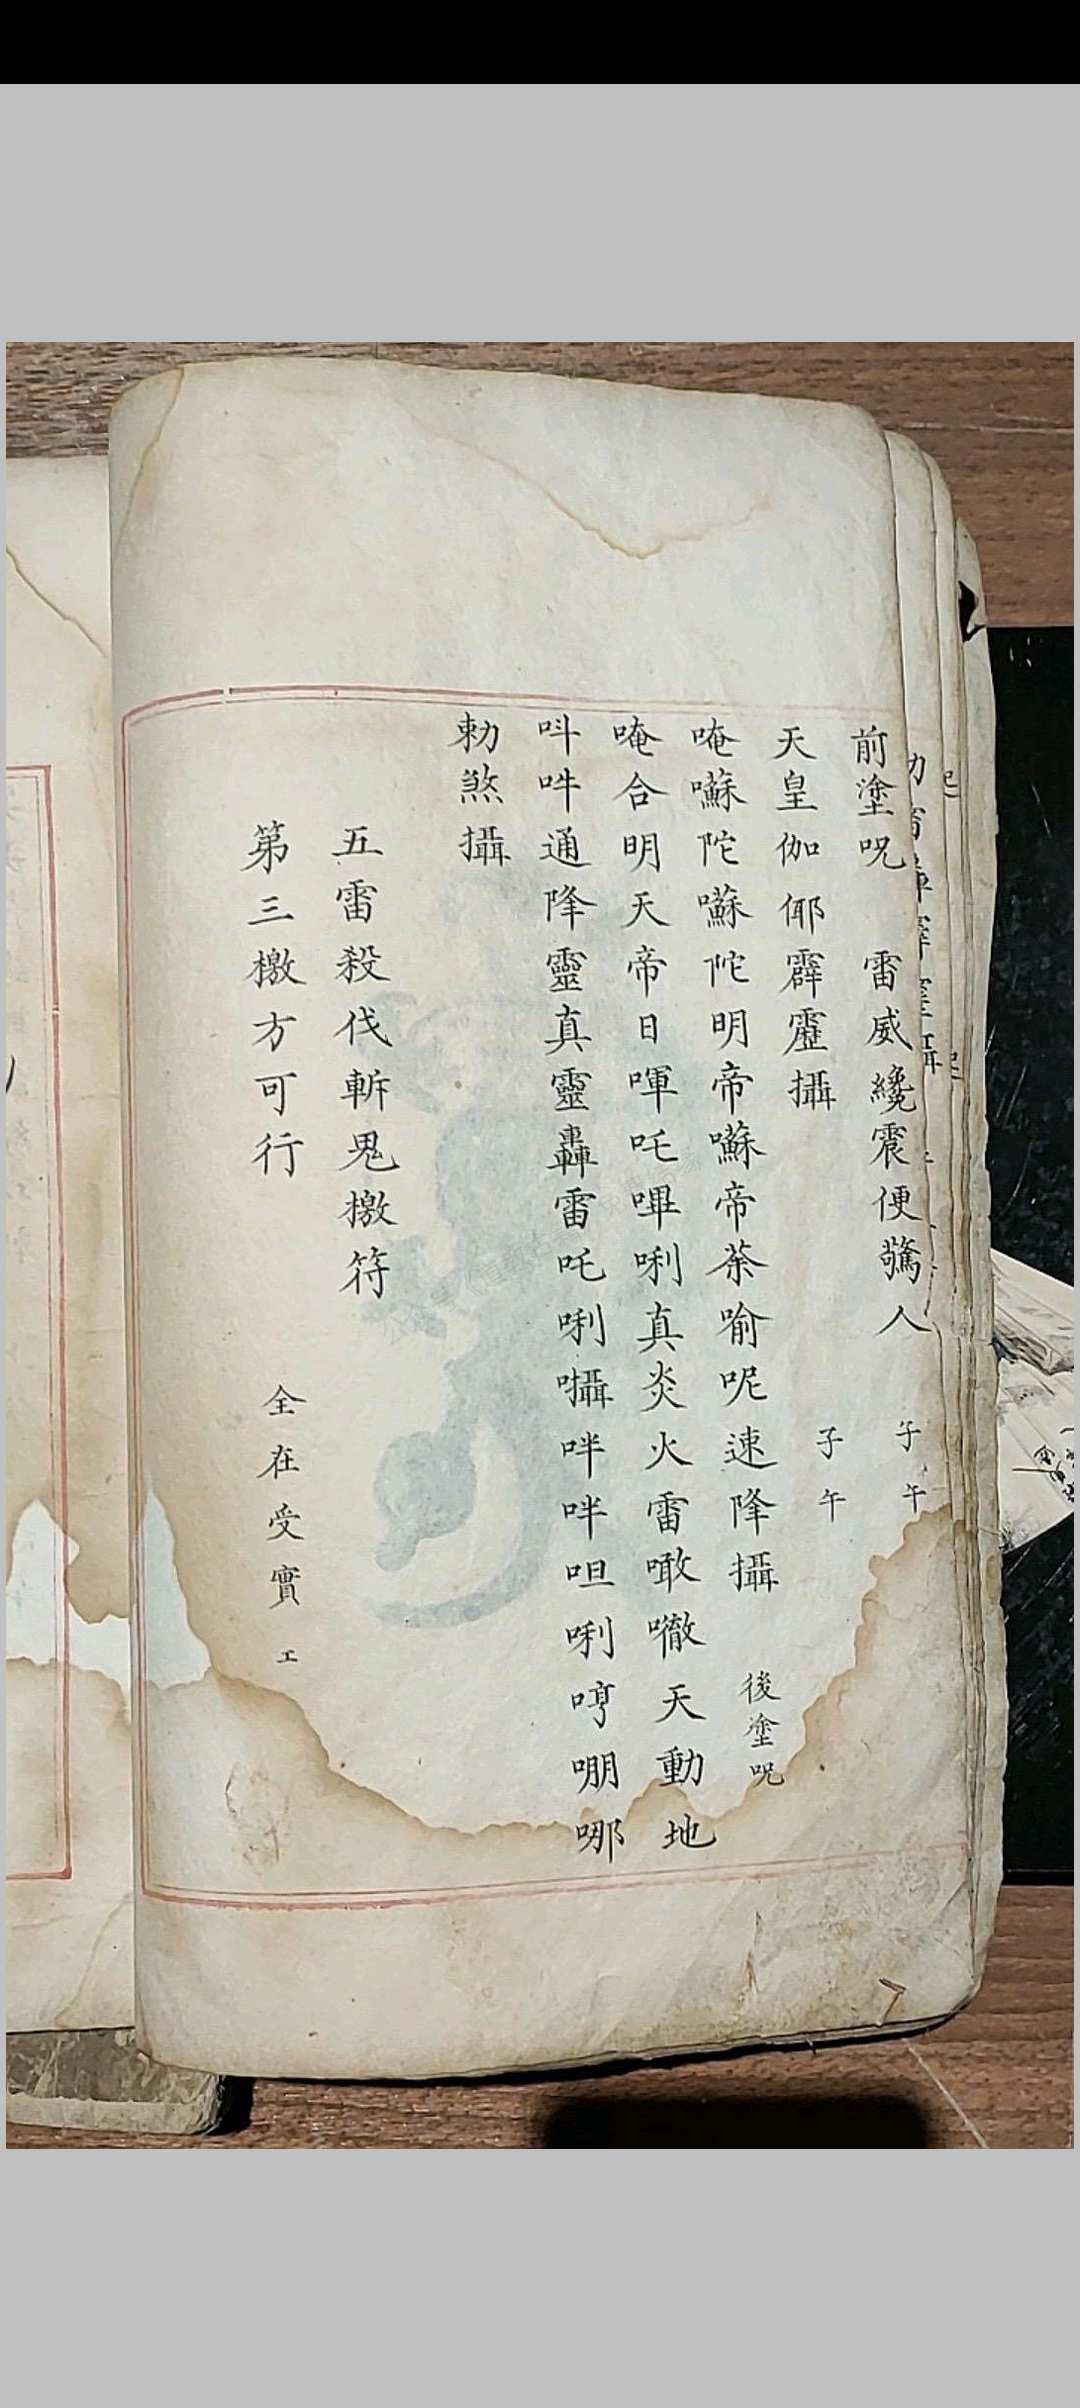 前塗咒　雷威纔震便驚人　子午
天皇伽倻霹靂攝　子午
唵囌陀囌陀明帝囌帝荼喻呢速降攝　後塗咒
唵合明天帝日喗吒嗶唎真炎火雷噉㘉天動地
呌吽通降靈真靈轟雷吒唎囁哶哶呾唎哼嘣哪
勅煞攝
五雷殺伐斬鬼檄符
第三檄方可行　全在受實工